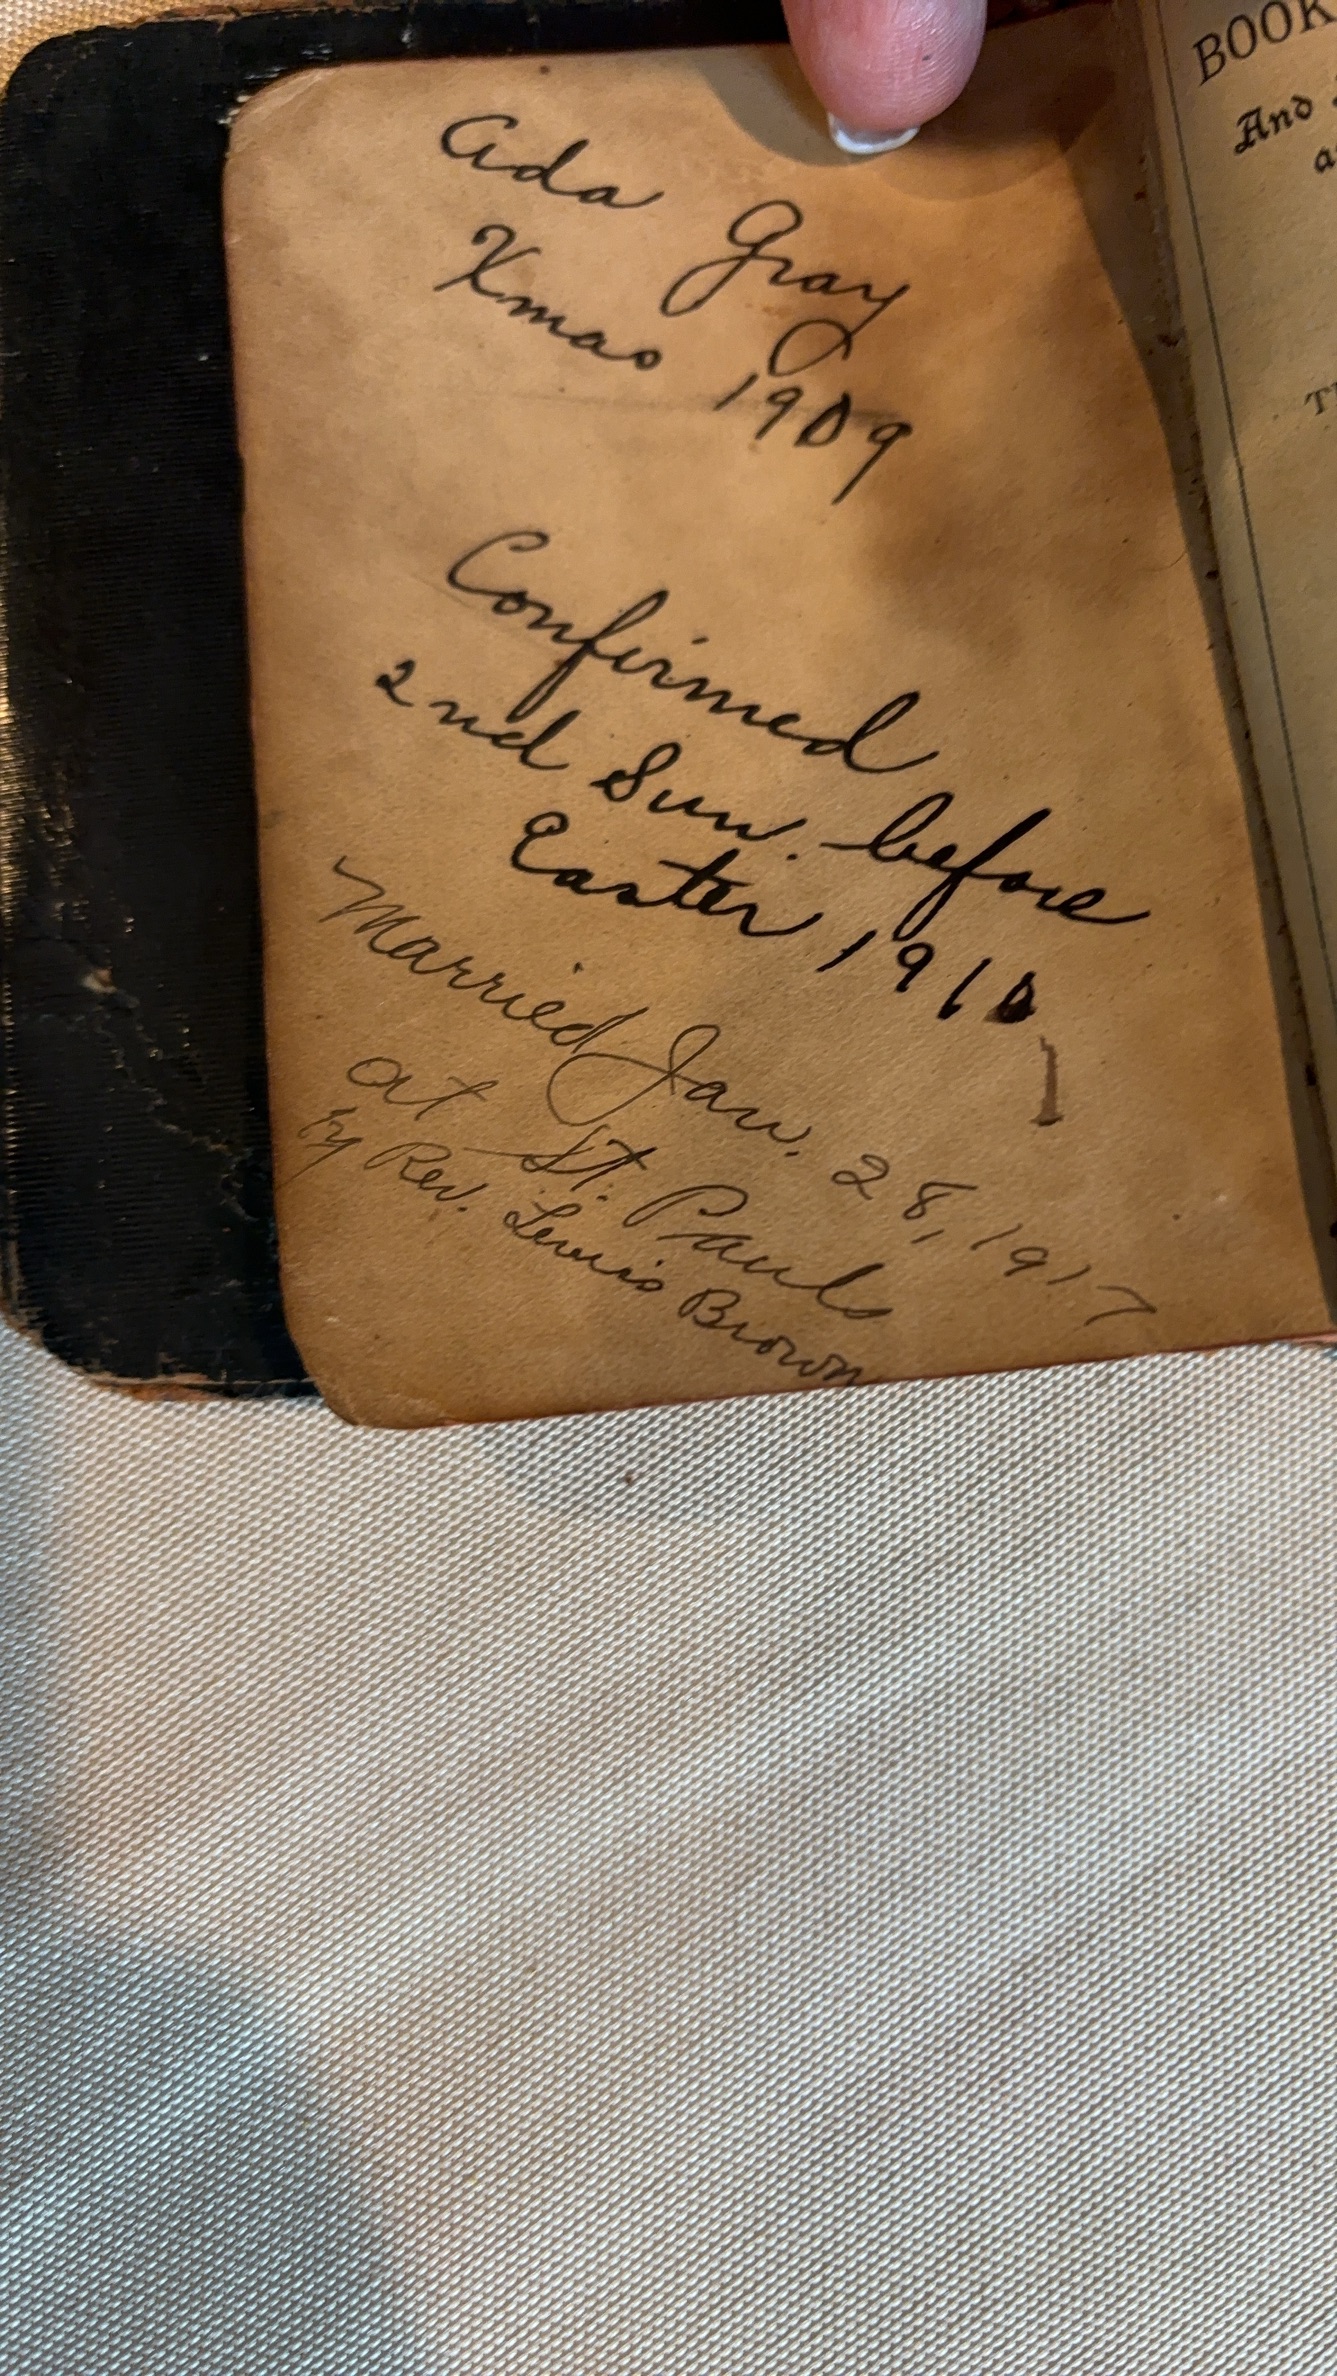 Ada Gray
Xmas 1909
Confirmed
2nd Sun. before
Easter 1910
Married Jan. 28, 1917
at St. Pauls
by Rev. Lewis Brown
BOOK
And